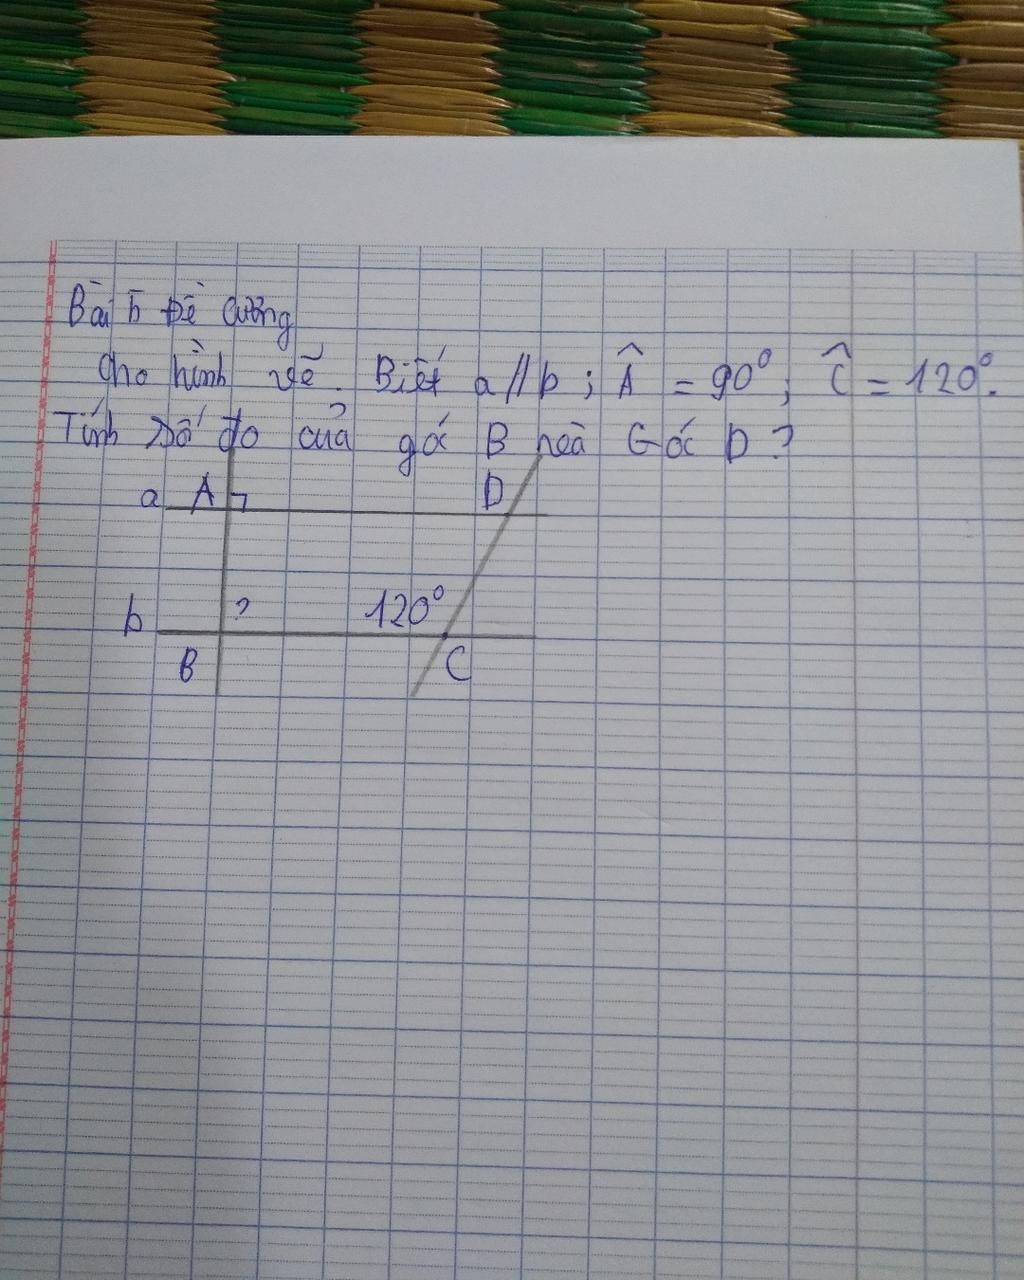 Bài 5 Đề Cương
Cho hình vẽ. Biết a // b ; Â = 90⁰ ; Ĉ = 120⁰.
Tính số đo của góc B và Góc D ?
a A D
b ? 120⁰
B C